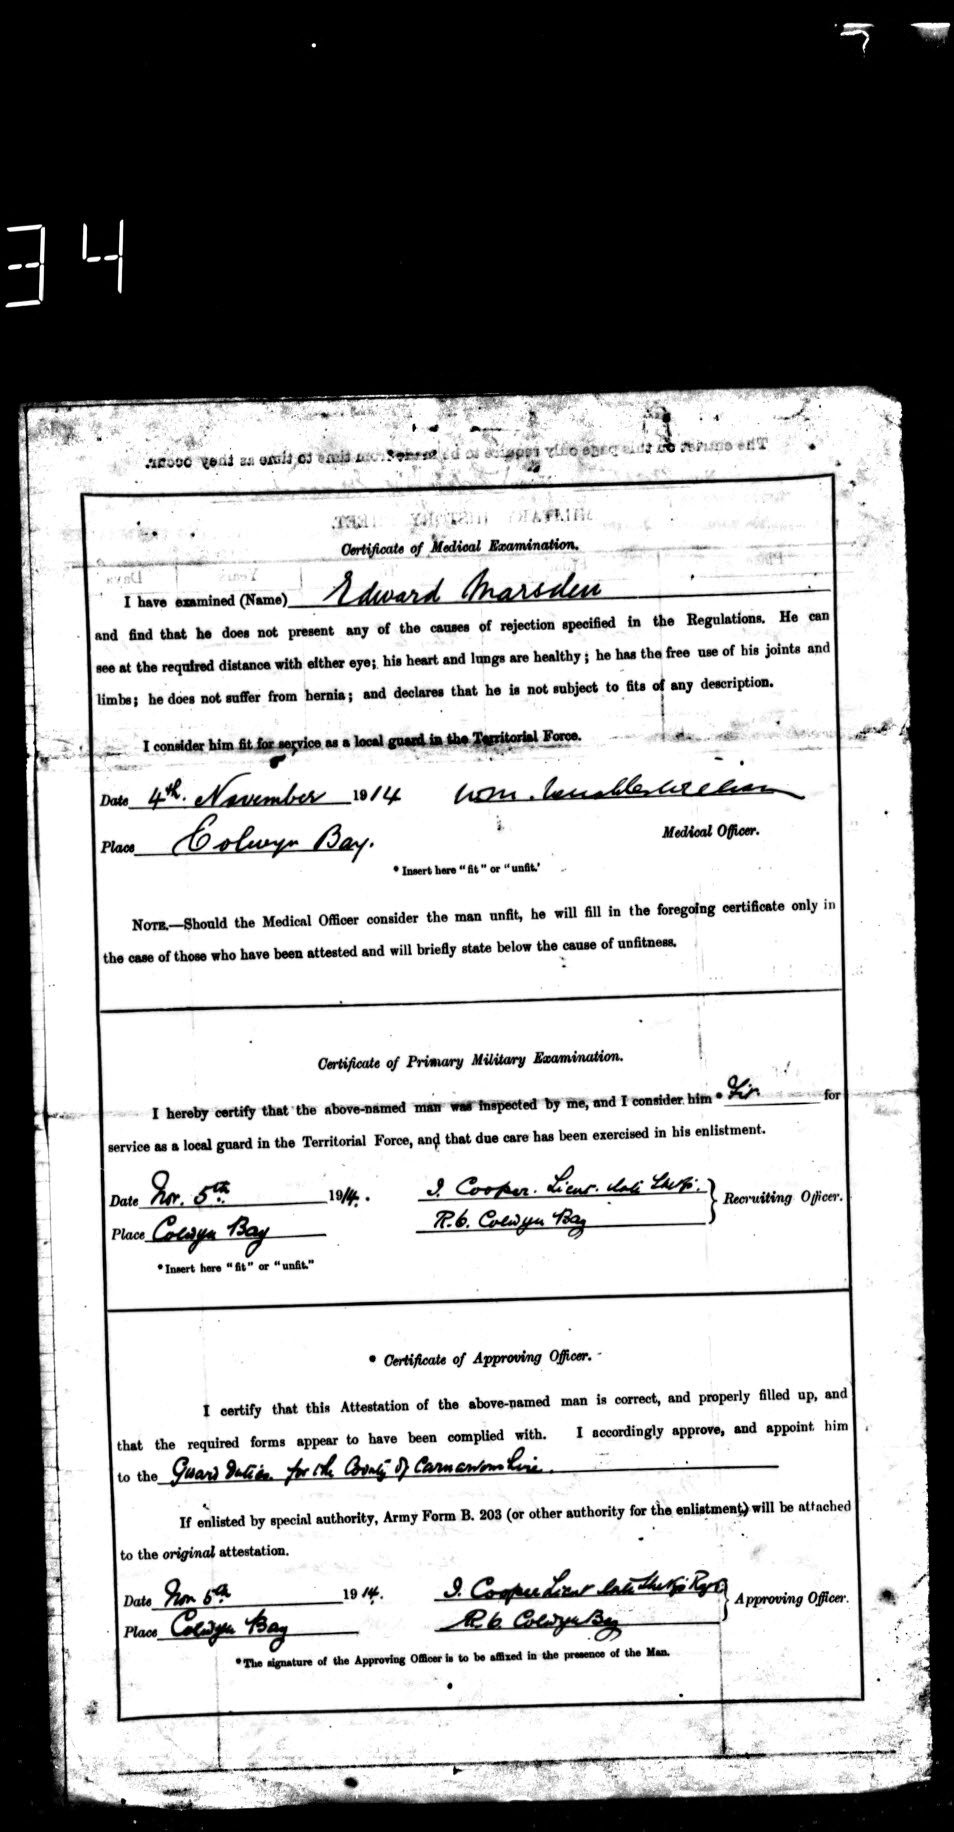 34
The entries on this page only require to be made from time to time as they occur.
MILITARY HISTORY SHEET.
Certificate of Medical Examination.
Years Days
I have examined (Name) Edward Marsden
and find that he does not present any of the causes of rejection specified in the Regulations. He can
see at the required distance with either eye; his heart and lungs are healthy; he has the free use of his joints and
limbs; he does not suffer from hernia; and declares that he is not subject to fits of any description.
I consider him fit for service as a local guard in the Territorial Force.
Date 4th. November 1914 Wm.
Place Colwyn Bay. Medical Officer.
* Insert here "fit" or "unfit.'
NOTE.—Should the Medical Officer consider the man unfit, he will fill in the foregoing certificate only in
the case of those who have been attested and will briefly state below the cause of unfitness.
Certificate of Primary Military Examination.
I hereby certify that the above-named man was inspected by me, and I consider him * Fit for
service as a local guard in the Territorial Force, and that due care has been exercised in his enlistment.
Date Nov. 5th 1914. I. Cooper. Lieut. late
Recruiting Officer.
Place Colwyn Bay R.O. Colwyn Bay
* Insert here "fit" or "unfit."
* Certificate of Approving Officer.
I certify that this Attestation of the above-named man is correct, and properly filled up, and
that the required forms appear to have been complied with. I accordingly approve, and appoint him
to the Guard Duties for the County of Carnarvonshire.
If enlisted by special authority, Army Form B. 203 (or other authority for the enlistment) will be attached
to the original attestation.
Date Nov 5th 1914. I. Cooper Lieut late Regt
Approving Officer.
Place Colwyn Bay R.O. Colwyn Bay
* The signature of the Approving Officer is to be affixed in the presence of the Man.